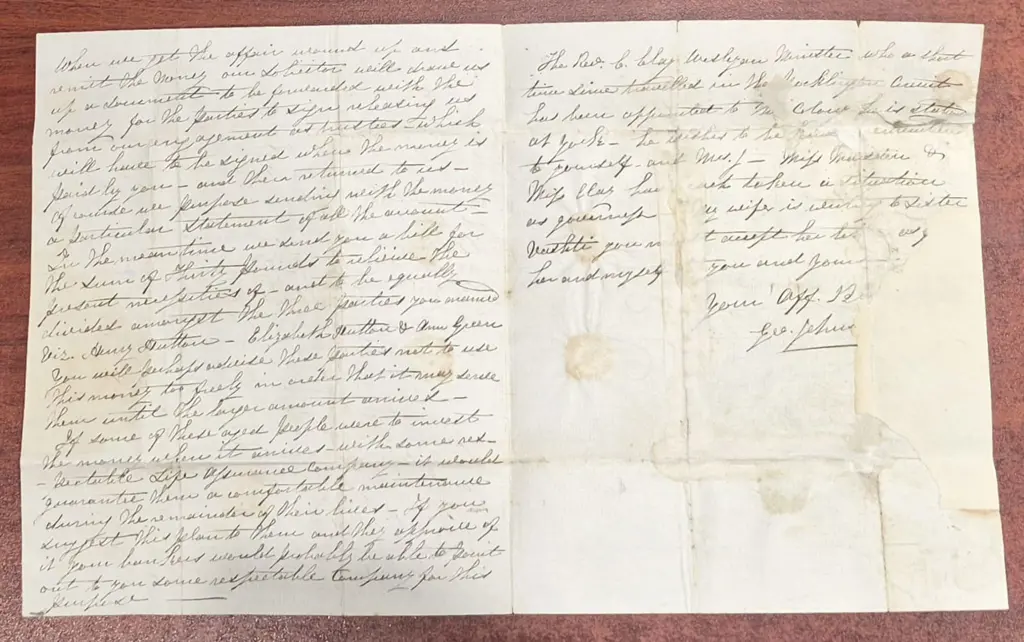 When we get the affair wound up and
remit the money our Solicitor will draw us
up a document to be forwarded with the
money for the parties to sign releasing us
from our engagement as trustees – which
will have to be signed when the money is
paid by you – and then returned to us –
Of course we purpose sending with the money
a particular statement of all the account –
In the meantime we send you a bill for
the sum of Thirty pounds to relieve the
present necessities of – and to be equally
divided amongst the three parties you named
Viz. Henry Hutton – Elizabeth Hutton & Ann Green
You will perhaps advise these parties not to use
this money too freely in order that it may serve
them until the larger amount arrives –
If some of these aged people were to invest
the money when it arrives – with some res-
-pectable Life Assurance Company – it would
guarantee them a comfortable maintenance
during the remainder of their lives – If you
suggest this plan to them and they approve of
it your bankers would probably be able to point
out to you some respectable Company for this
purpose
The Rev. C. Clay Weslyan Minister who a short
time since travelled in the Pocklington Circuit
has been appointed to this Colony he is
at – he wishes to be
to yourself and Mrs. J – Miss &
Miss Clay has taken a situation
as governess wife is to Sister
Vashti you accept her
her and myself you and yours
Your Aff.
Geo. Johns